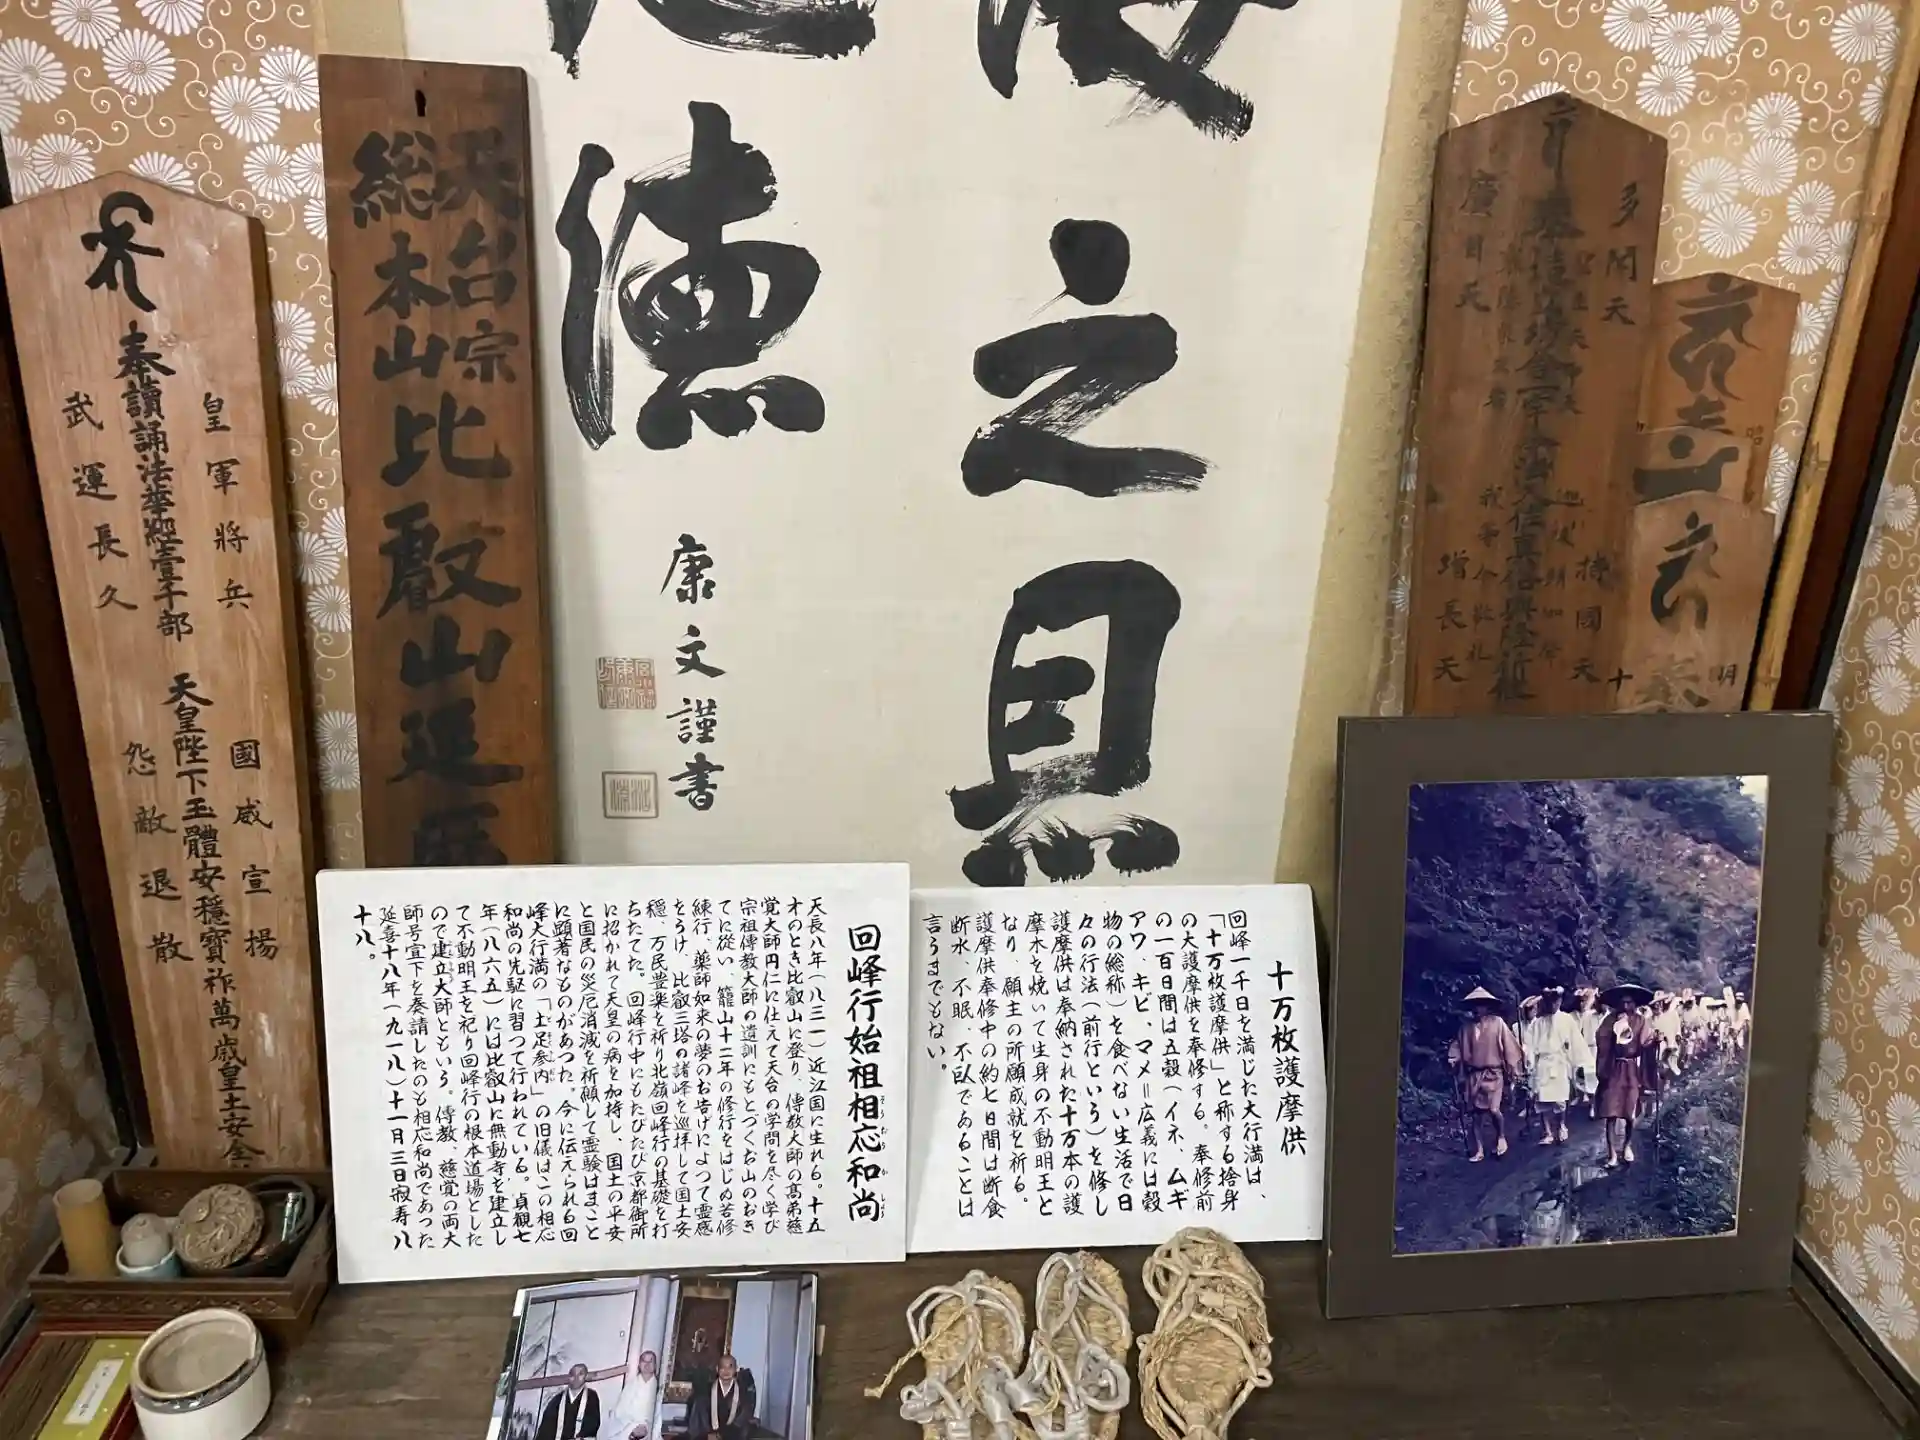 奉讀誦法華經壹千部 天皇陛下玉體安穩寶祚萬歲皇土安全
皇軍將兵
武運長久
國威宣揚
怨敵退散
天台宗
総本山
比叡山延
之
徳
康文謹書
多聞天
廣目天
持國天
增長天
回峰行始祖相応和尚
そうおうかしょう
天長八年（八三一）近江国に生れる。十五
才のとき比叡山に登り、傳教大師の高弟慈
覚大師円仁に仕えて天台の学問を尽く学び
宗祖傳教大師の遺訓にもとづくお山のおき
てに従い、籠山十二年の修行をはじめ苦修
練行、薬師如来の夢のお告げによって霊感
をうけ、比叡三塔の諸峰を巡拝して国土安
穏、万民豊楽を祈り北嶺回峰行の基礎を打
ちたてた。回峰行中にもたびたび京都御所
に招かれて天皇の病を加持し、国土の平安
と国民の災厄消滅を祈願して霊験はまこと
に顕著なものがあつた。今に伝えられる回
峰大行満の「土足参内」の旧儀はこの相応
和尚の先駆に習つて行われている。貞観七
年（八六五）には比叡山に無動寺を建立し
て不動明王を祀り回峰行の根本道場とした
ので建立大師とという。傳教、慈覚の両大
師号宣下を奏請したのも相応和尚であった
延喜十八年（九一八）十一月三日寂寿八
十八。
十万枚護摩供
回峰一千日を満じた大行満は、
「十万枚護摩供」と称する捨身
の大護摩供を奉修する。奉修前
の一百日間は五穀（イネ、ムギ
アワ、キビ、マメ＝広義には穀
物の総称）を食べない生活で日
々の行法（前行という）を修し
護摩供は奉納された十万本の護
摩木を焼いて生身の不動明王と
なり、願主の所願成就を祈る。
護摩供奉修中の約七日間は断食
断水、不眠、不臥であることは
言うまでもない。